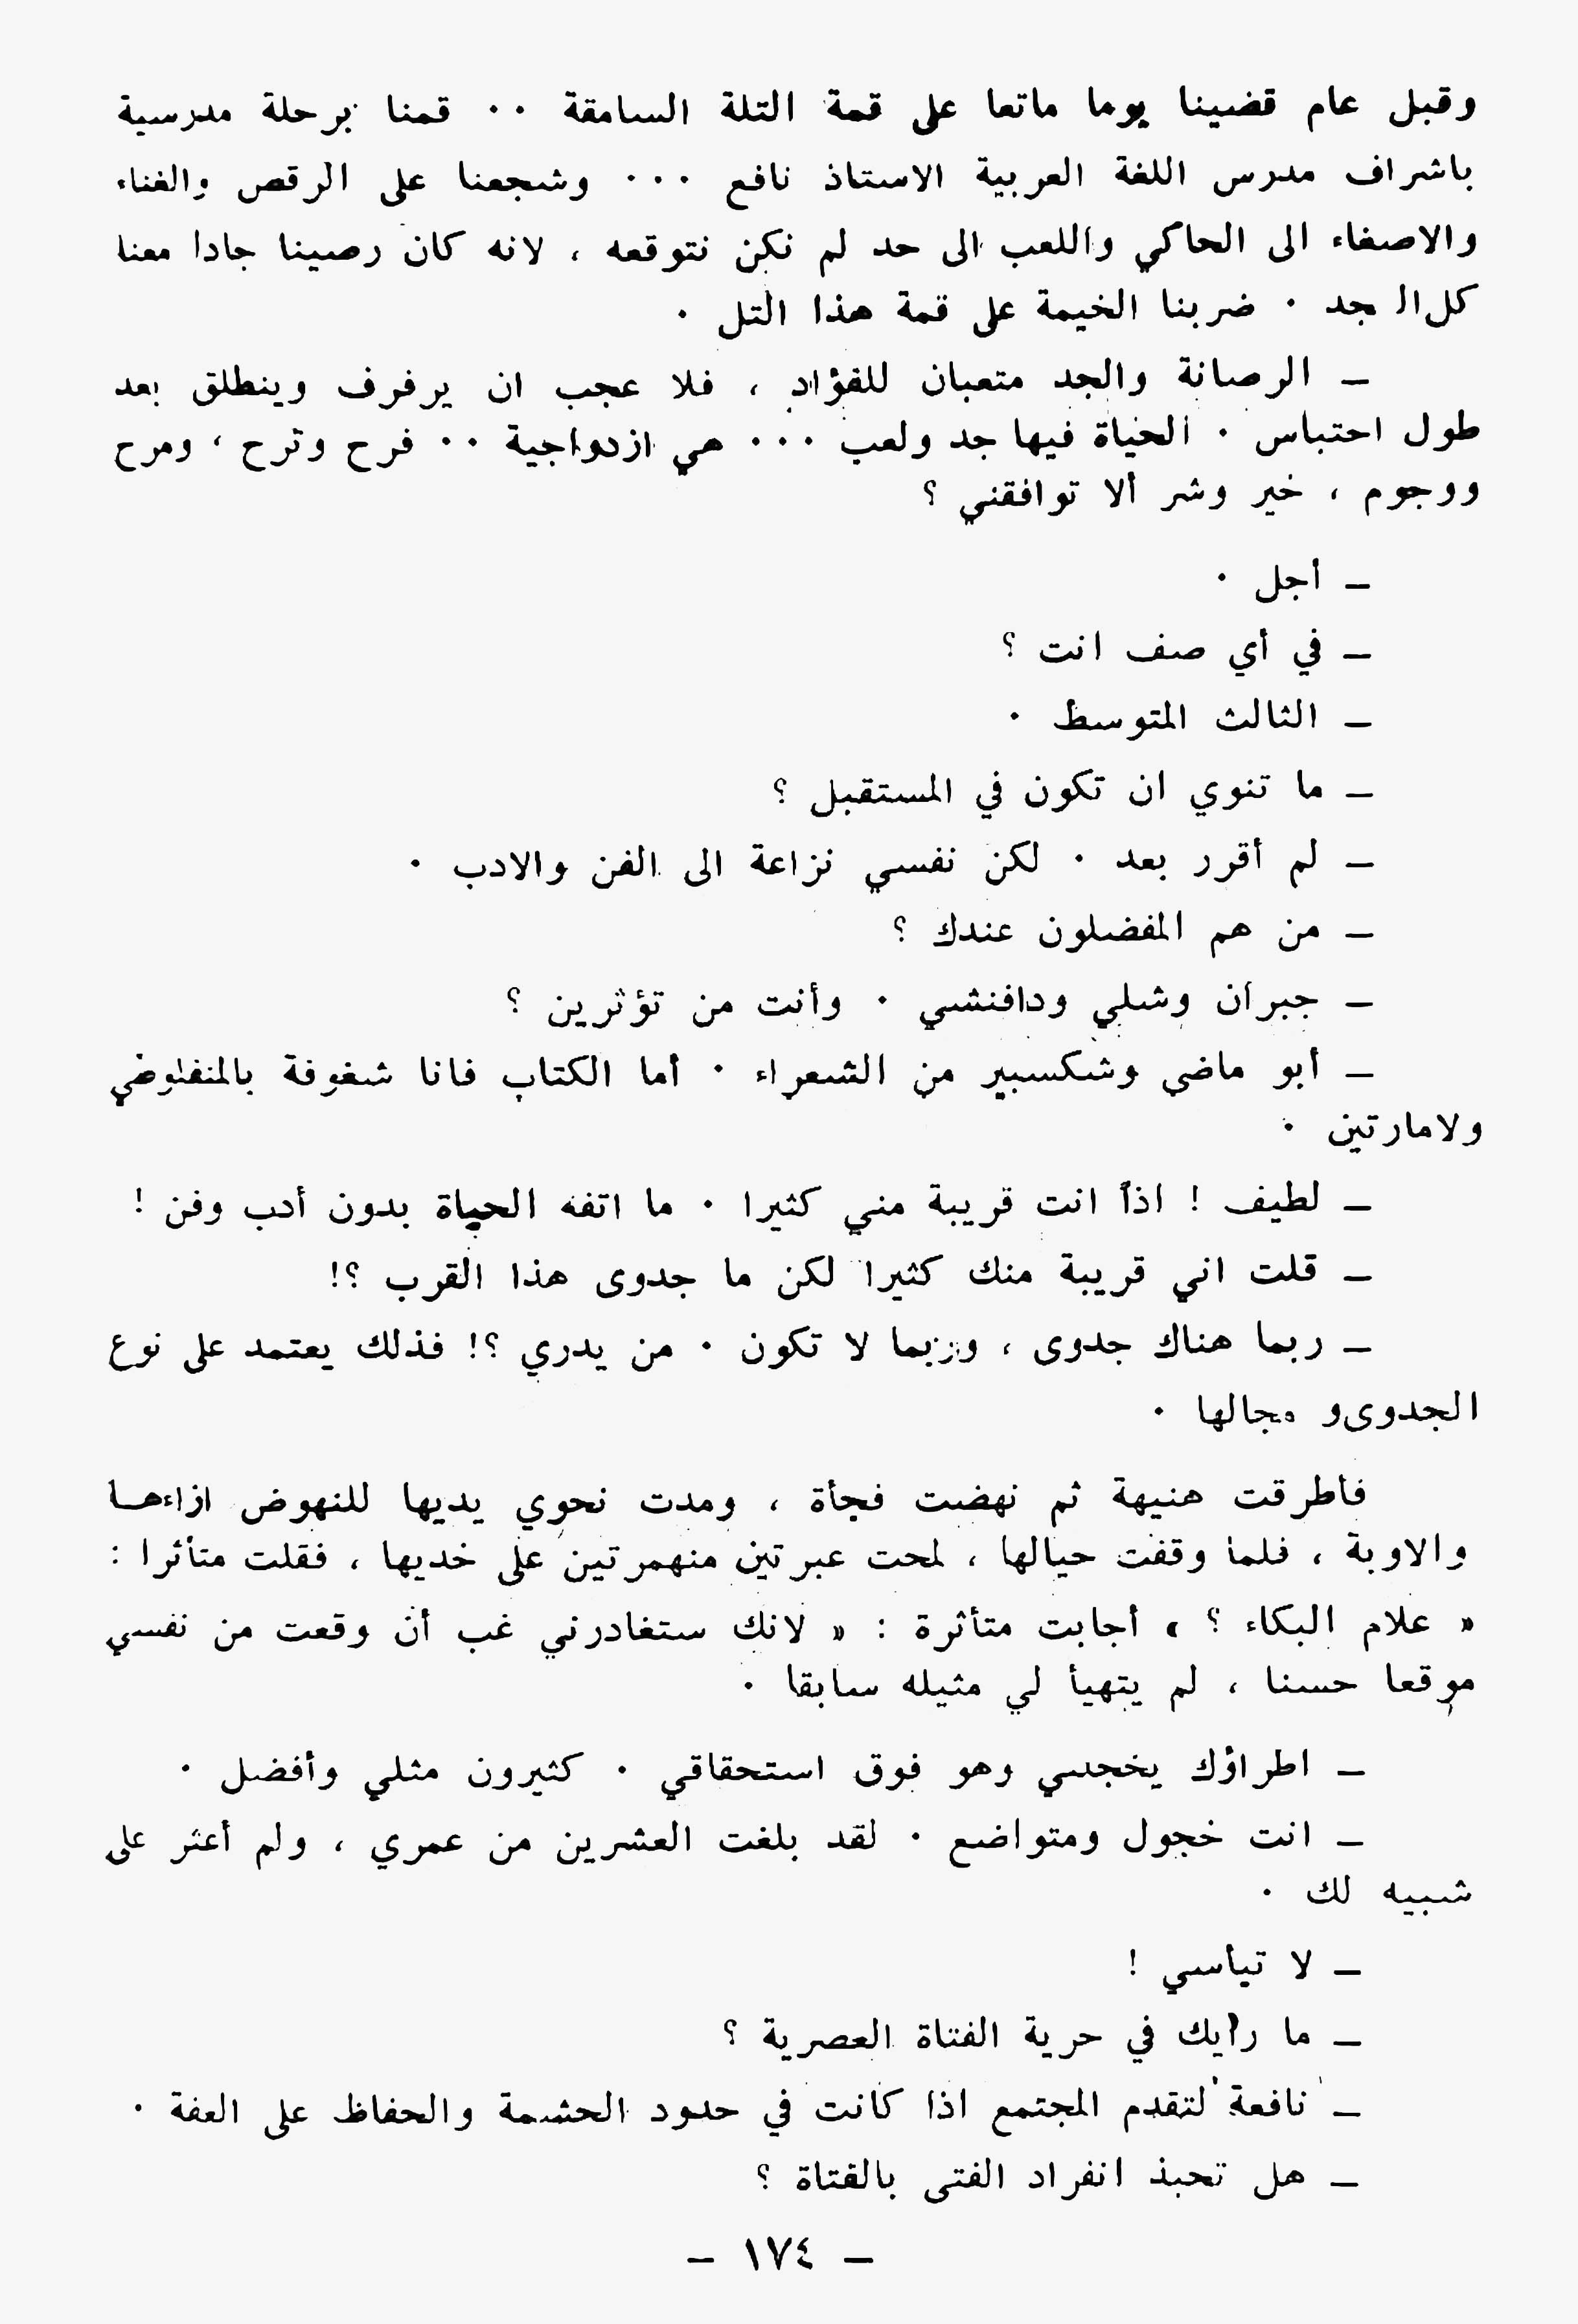 وقبل عام قضينا يوما ماتعا على قمة التلة السامقة ٠٠ قمنا برحلة مدرسية
باشراف مدرس اللغة العربية الاستاذ نافع ٠٠٠ وشجعنا على الرقص والغناء
والاصغاء الى الحاكي واللعب الى حد لم نكن نتوقعه ، لانه كان رصينا جادا معنا
كل الجد ٠ ضربنا الخيمة على قمة هذا التل ٠
ــ الرصانة والجد متعبان للفؤاد ، فلا عجب ان يرفرف وينطلق بعد
طول احتباس ٠ الحياة فيها جد ولعب ٠٠٠ هي ازدواجية ٠٠ فرح وترح ، ومرح
ووجوم ، خير وشر ألا توافقني ؟
ــ أجل ٠
ــ في أي صف انت ؟
ــ الثالث المتوسط ٠
ــ ما تنوي ان تكون في المستقبل ؟
ــ لم أقرر بعد ٠ لكن نفسي نزاعة الى الفن والادب ٠
ــ من هم المفضلون عندك ؟
ــ جبران وشلي ودافنشي ٠ وأنت من تؤثرين ؟
ــ أبو ماضي وشكسبير من الشعراء ٠ أما الكتاب فانا شغوفة بالمنفلوطي
ولامارتين ٠
ــ لطيف ! اذاً انت قريبة مني كثيرا ٠ ما اتفه الحياة بدون أدب وفن !
ــ قلت اني قريبة منك كثيرا لكن ما جدوى هذا القرب ؟!
ــ ربما هناك جدوى ، وربما لا تكون ٠ من يدري ؟! فذلك يعتمد على نوع
الجدوى و مجالها ٠
فأطرقت هنيهة ثم نهضت فجأة ، ومدت نحوي يديها للنهوض ازاءها
والاوبة ، فلما وقفت حيالها ، لمحت عبرتين منهمرتين على خديها ، فقلت متأثرا :
« علام البكاء ؟ » أجابت متأثرة : « لانك ستغادرني غب أن وقعت من نفسي
موقعا حسنا ، لم يتهيأ لي مثيله سابقا ٠
ــ اطراؤك يخجلني وهو فوق استحقاقي ٠ كثيرون مثلي وأفضل ٠
ــ انت خجول ومتواضع ٠ لقد بلغت العشرين من عمري ، ولم أعثر على
شبيه لك ٠
ــ لا تيأسي !
ــ ما رأيك في حرية الفتاة العصرية ؟
ــ نافعة لتقدم المجتمع اذا كانت في حدود الحشمة والحفاظ على العفة ٠
ــ هل تحبذ انفراد الفتى بالفتاة ؟
ــ ١٧٤ ــ